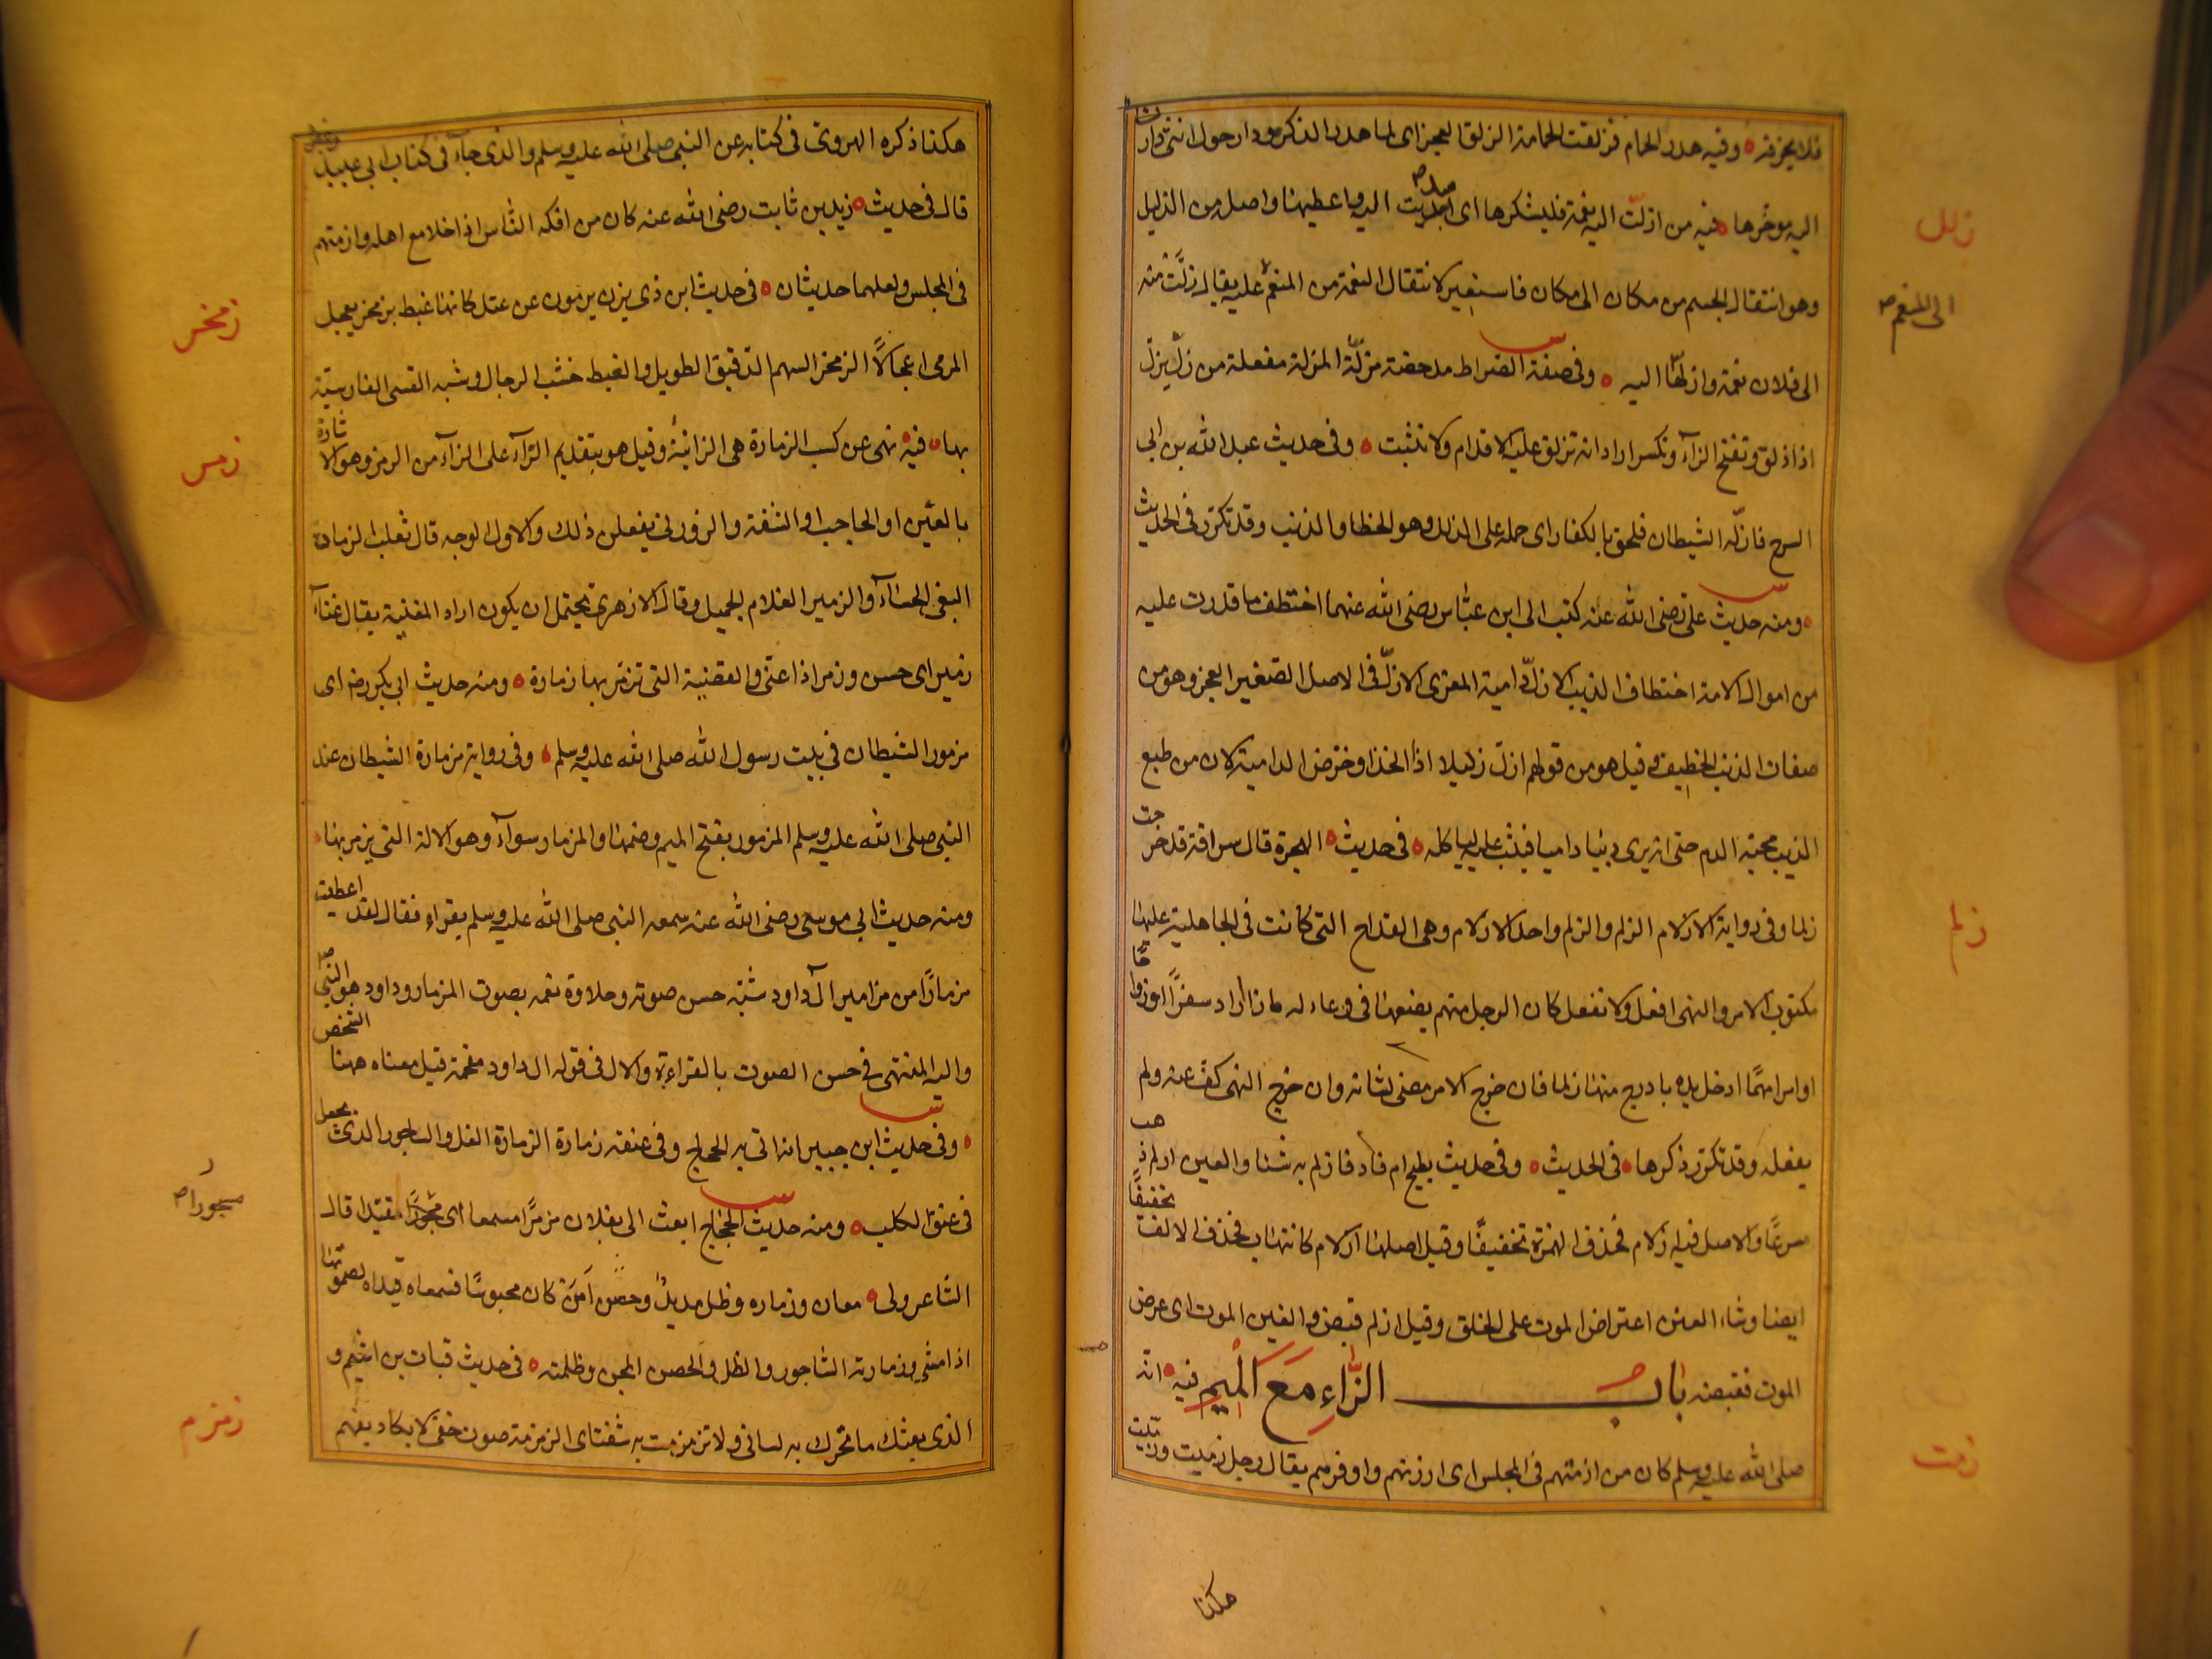 فلا يحزفه ه وفيه هدر الحمام فزلقت الحمامة الزلق العجز اى لما هدر الذكر ودار حول انثى دارت
اليه مؤخرها ه فيه من ازلّت اليه نعمة فليشكرها اى اسديت اليه واعطيها واصله من الزليل
زلل
وهو انتقال الجسم من مكان الى مكان فاستعير لانتقال النعمة من المنعم عليه يقال زلّت منه
الى المنعم ص
الى فلان نعمة وازلّها اليه ه وفى صفة الصراط مدحضة مزلّة المزلة مفعلة من زلّ يزلّ
اذا زلق وتفتح الزآء وتكسر اراد انه تزلق عليه الاقدام ولا تثبت ه وفى حديث عبد الله بن ابى
السرح فازلّه الشيطان فلحق بالكفار اى حمله على الزلل وهو الخطا والذنب وقد تكرّر فى الحديث
ه ومنه حديث على رضى الله عنه كتب الى ابن عبّاس رضى الله عنهما اختطف ما قدرت عليه
من اموال الامة اختطاف الذيب الازلّ دامية المعزى الازلّ فى الاصل الصّغير العجز وهو من
صفات الذيب الخطيف وقيل هو من قولهم ازلّ زليلا اذا وخرّض الدامية لان من طبع
الذيب محبّة الدم حتى انه يرى ذيبا داميا فيثب عليه لياكله ه فى حديث ه الهجرة قال سراقة فاخرجت
زلما وفى رواية الازلام الزلم والزلم واحد الازلام وهى القداح التى كانت فى الجاهلية عليها
زلم
مكتوب الامر والنهى افعل ولا تفعل كان الرجل منهم يضعها فى وعاء له فاذا اراد سفرًا او زواجا
او امرا مهمًّا ادخل يده فاخرج منها زلما فان خرج الامر مضى لشانه وان خرج النهى كفّ عنه ولم
يفعله وقد تكرّر ذكرها ه فى الحديث ه وفى حديث سطيح ام فاد فازلم به شاو العنن ازلم ذهب
مسرعًا والاصل فيه ازلام فحذف الهمزة تخفيفًا وقيل اصلها ازلام كاشهاب فحذف الالف تخفيفًا
ايضا وشاء العنن اعتراض الموت على الخلق وقيل ازلم قبض والعنن الموت اى عرض
الموت فقبضه باب الزَّاءِ مَعَ الْمِيمِ فيه ه انه
صلى الله عليه وسلم كان من ازمتهم فى المجلس اى ارزنهم واوقرهم يقال رجل زميت وزمّيت
زمت
هكذا
هكذا ذكره الهروى فى كتابه عن النبى صلى الله عليه وسلم والذى جآء فى كتاب ابى عبيد وغيره
قال فى حديث ه زيد بن ثابت رضى الله عنه كان من افكه النّاس اذا خلا مع اهله وازمتهم
فى المجلس ولعلهما حديثان ه فى حديث ابن ذى يزن يرمون عن عتل كانها غبط بزمخر يعجل
زمخر
المرمى اعجالًا الزمخر السهم الدّقيق الطويل والغبط خشب الرحال وشبه القسى الفارسيّة
بها ه فيه نهى عن كسب الزمارة هى الزانية وقيل هو بتقديم الرّآء على الزآء من الرمز وهو الاشارة
زمر
بالعين او الحاجب او الشفة والزوانى يفعلن ذلك والاول الوجه قال ثعلب الزمارة
البغى الحسنآء والزمير الغلام الجميل وقال الازهرى يحتمل ان يكون اراد المغنية يقال غنآء
زمير اى حسن وزمر اذا غنّى والقصبة التى تزمّر بها زمارة ه ومنه حديث ابى بكر رضه اى
مزمور الشيطان فى بيت رسول الله صلى الله عليه وسلم ه وفى رواية مزمارة الشيطان عند
النبى صلى الله عليه وسلم المزمور بفتح الميم وضمها والمزمار سوآء وهو الالة التى يزمر بها ه
ومنه حديث ابى موسى رضى الله عنه سمعه النبى صلى الله عليه وسلم يقراء فقال لقد اعطيت
مزمارًا من مزامير آل داود شبّه حسن صوته وحلاوة نغمه بصوت المزمار وداود هو النبى ص
واليه المنتهى فى حسن الصوت بالقراءة والال فى قوله ال داود مقحمة قيل معناه ههنا الشخص
ه وفى حديث ابن جبير انه اتى به الحجاج وفى عنقه زمارة الزمارة الغل والساجور الذى يجعل
فى عنق الكلب ه ومنه حديث الحجّاج ابعث الى بفلان مزمّرًا مسمعا اى مسجورًا مقيّدا قال
مسجورا ص
الشّاعر ولى ه مسمعان وزماره وظل مديدٌ وحصن اَمَقّ كان محبوسًا فمسمعاه قيداه لصوتهما
اذا مشى وزمارته الساجور والظل والحصن السجن وظلمته ه فى حديث قباث بن اشيم و
الذى بعثك ما تحرك به لسانى ولا تزمزمت به شفتاى الزمزمة صوت خفىّ لا يكاد يفهم
زمزم